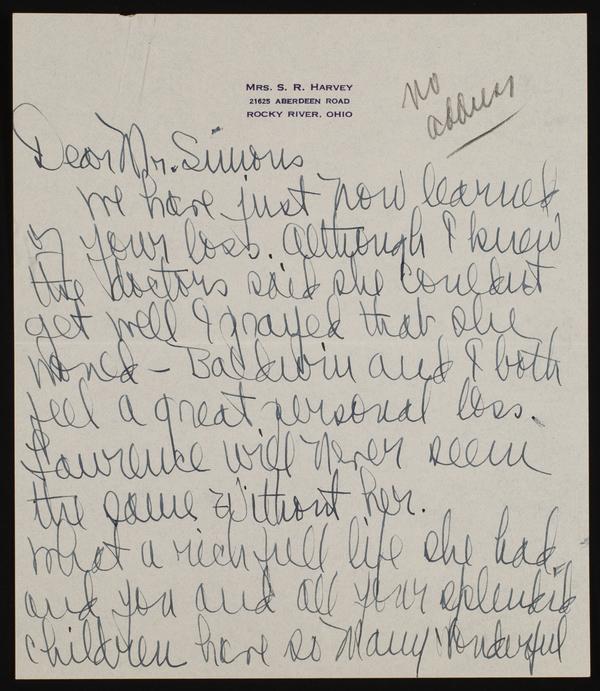 MRS. S. R. HARVEY
21625 ABERDEEN ROAD
ROCKY RIVER, OHIO
no
address
Dear Mr. Simons
We have just now learned
of your loss. Although I knew
the doctors said she couldnt
get well I prayed that she
would – Baldwin and I both
feel a great personal loss.
Lawrence will never seem
the same without her.
What a rich full life she had,
and you and all your splendid
children have so many wonderful